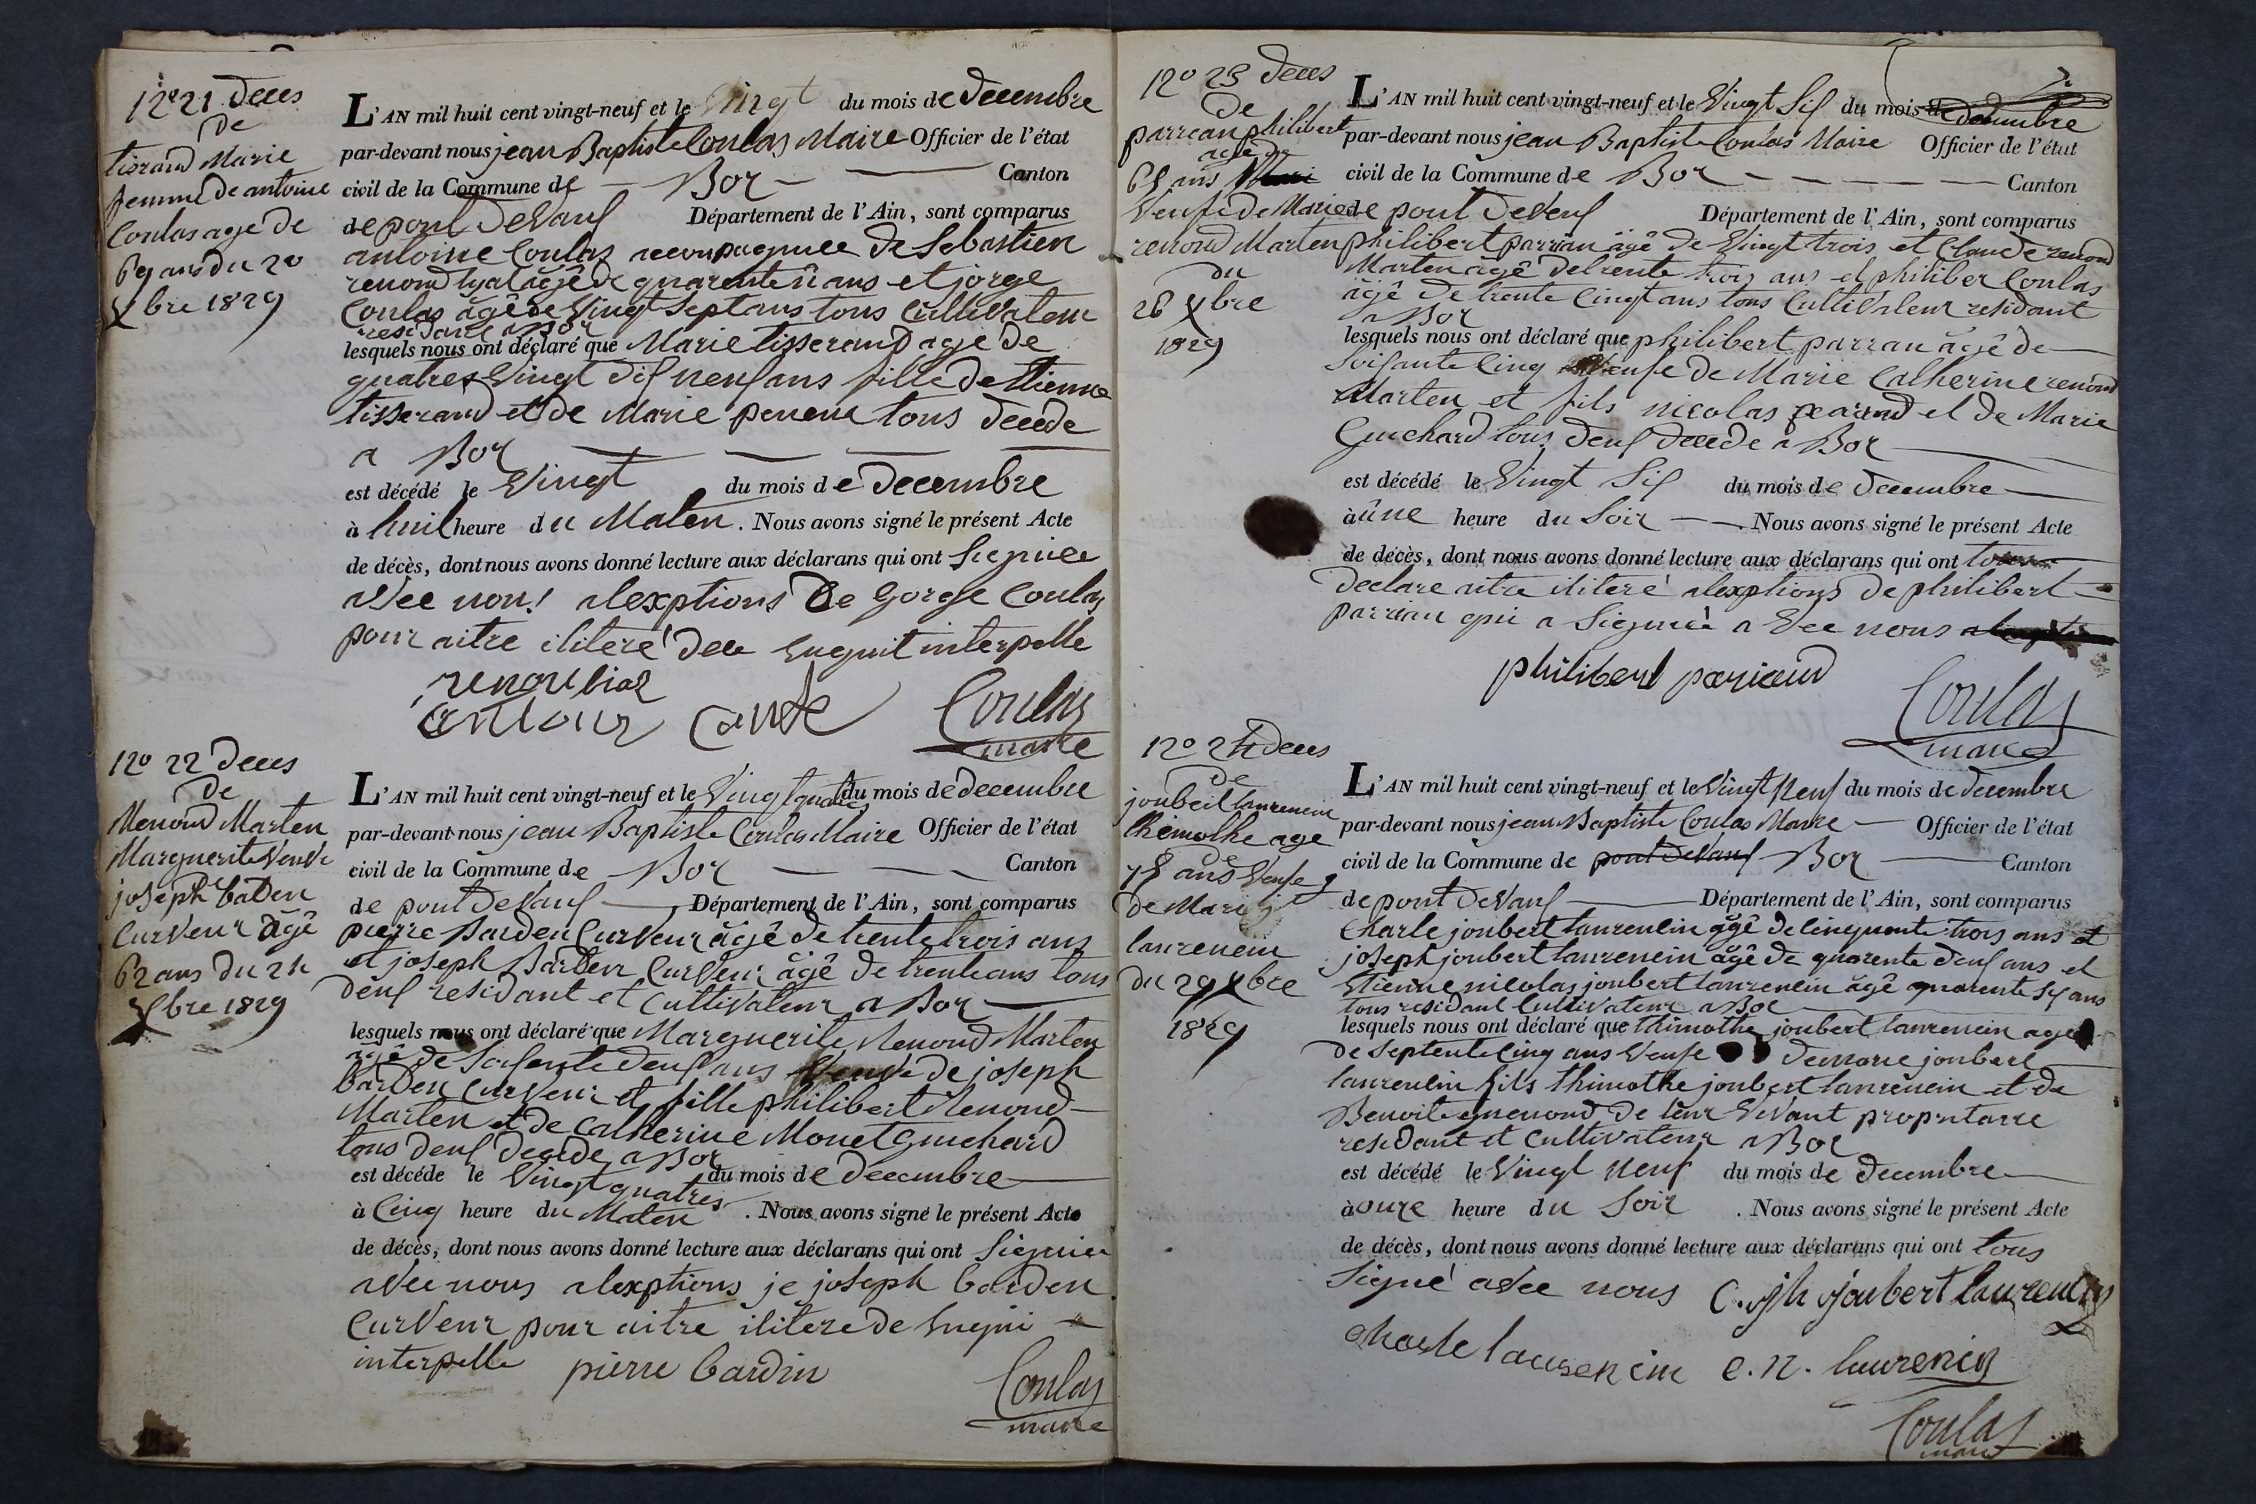 12° 21 Deces
de
tisrand Marie
femme de antoine
Coulas age de
69 ans du 20
Xbre 1829
L'AN mil huit cent vingt-neuf et le Vingt du mois de Decembre
par-devant nous jean Baptiste Coulas Maire Officier de l'état
civil de la Commune de Boz Canton
de pont DeVaus Département de l'Ain, sont comparus
antoine Coulas accompagniee de Sebastien
renoud lyat âgê de quarente ans et jorge
Coulas âgê de Vingt Sept ans tous Cultivateur
residant a Boz
lesquels nous ont déclaré que Marie tisserand age de
quatres Vingt dis neuf ans fille de Etienne
tisserand et de Marie tous decede
a Boz
est décédé le Vingt du mois de Decembre
à huit heure du Maten . Nous avons signé le présent Acte
de décès, dont nous avons donné lecture aux déclarans qui ont Siegniee
aVec nous alexptions De Gorge Coulas
pour aitre iliteré dece enquit interpelle
Coulas
maire
12° 22 Deces
de
Renoud Marten
Marguerite VeuVe
joseph barden
CurVeur âgê
62 ans du 24
Xbre 1829
L'AN mil huit cent vingt-neuf et le Vingt quatres du mois de decembre
par-devant nous jean Baptiste Coulas Maire Officier de l'état
civil de la Commune de Boz Canton
de pont DeVaus Département de l'Ain, sont comparus
pierre Barden CurVeur âgê de trente trois ans
et joseph Barden CurVeur âgê de trente ans tous
deus residant et cultivateur a Boz
lesquels nous ont déclaré que Marguerite Renoud Marten
âgê de Soisente deus ans VeuVe de joseph
barden CurVeur et fille philibert Renoud
Marten et de Catherine Monet Guichard
tous deus decede a Boz
est décédé le Vingt quatres du mois de Decembre
à Cinq heure du Maten . Nous avons signé le présent Acte
de décès, dont nous avons donné lecture aux déclarans qui ont Siegniee
aVec nous alexptions je joseph barden
CurVeur pour aitre ilitere de enquit
interpelle pierre bardin
Coulas
maire
12° 23 Deces
de
parrean philibert
age de
65 ans
Veufe de Marie
renoud Marten
du
26 Xbre
1829
L'AN mil huit cent vingt-neuf et le Vingt Sis du mois de decembre
par-devant nous jean Baptiste Coulas Maire Officier de l'état
civil de la Commune de Boz Canton
de pont DeVeus Département de l'Ain, sont comparus
philibert parran âgê de Vingt trois et Claude renoud
Marten âgê de trente trois ans et philiber Coulas
âgê de trente Cinqt ans tous CultiVateur residant
a Boz
lesquels nous ont déclaré que philibert parran âgê de
Soisante Cinq Veufe de Marie Catherine renoud
Marten et fils nicolas parrand et de Marie
Guichard tous deus decede a Boz
est décédé le Vingt Sis du mois de decembre
à une heure du Soir Nous avons signé le présent Acte
de décès, dont nous avons donné lecture aux déclarans qui ont
declare aitre ilitere alexptions de philibert
parran qui a Siegnie aVec nous
philibert pariaud
Coulas
maire
12° 24 Deces
de
joubert laurencin
thimothe age
de
75 ans Veufe
de Marie j
laurencin
du 29 Xbre
1829
L'AN mil huit cent vingt-neuf et le Vingt Neuf du mois de decembre
par-devant nous jean Baptiste Coulas Maire Officier de l'état
civil de la Commune de pont DeVaus Boz Canton
de pont DeVaus Département de l'Ain, sont comparus
Charle joubert laurencin âgê de cinquante trois ans et
joseph joubert laurencin âgê de quarente deus ans et
Etienne nicolas joubert laurencin âgê quarente Sis ans
tous residant Cultivateur a Boz
lesquels nous ont déclaré que thimothe joubert laurencin age
de Septente Cinq ans Veufe de marie joubert
laurencin fils thimothe joubert laurencin et de
Benoite guenoud de leur ViVant propritarre
residant et cultivateur a Boz
est décédé le Vingt Neuf du mois de decembre
à onze heure du Soir . Nous avons signé le présent Acte
de décès, dont nous avons donné lecture aux déclarans qui ont tous
Signé aVec nous C. jh joubert laurencin
charle laurencin e. n. laurencin
Coulas
maire